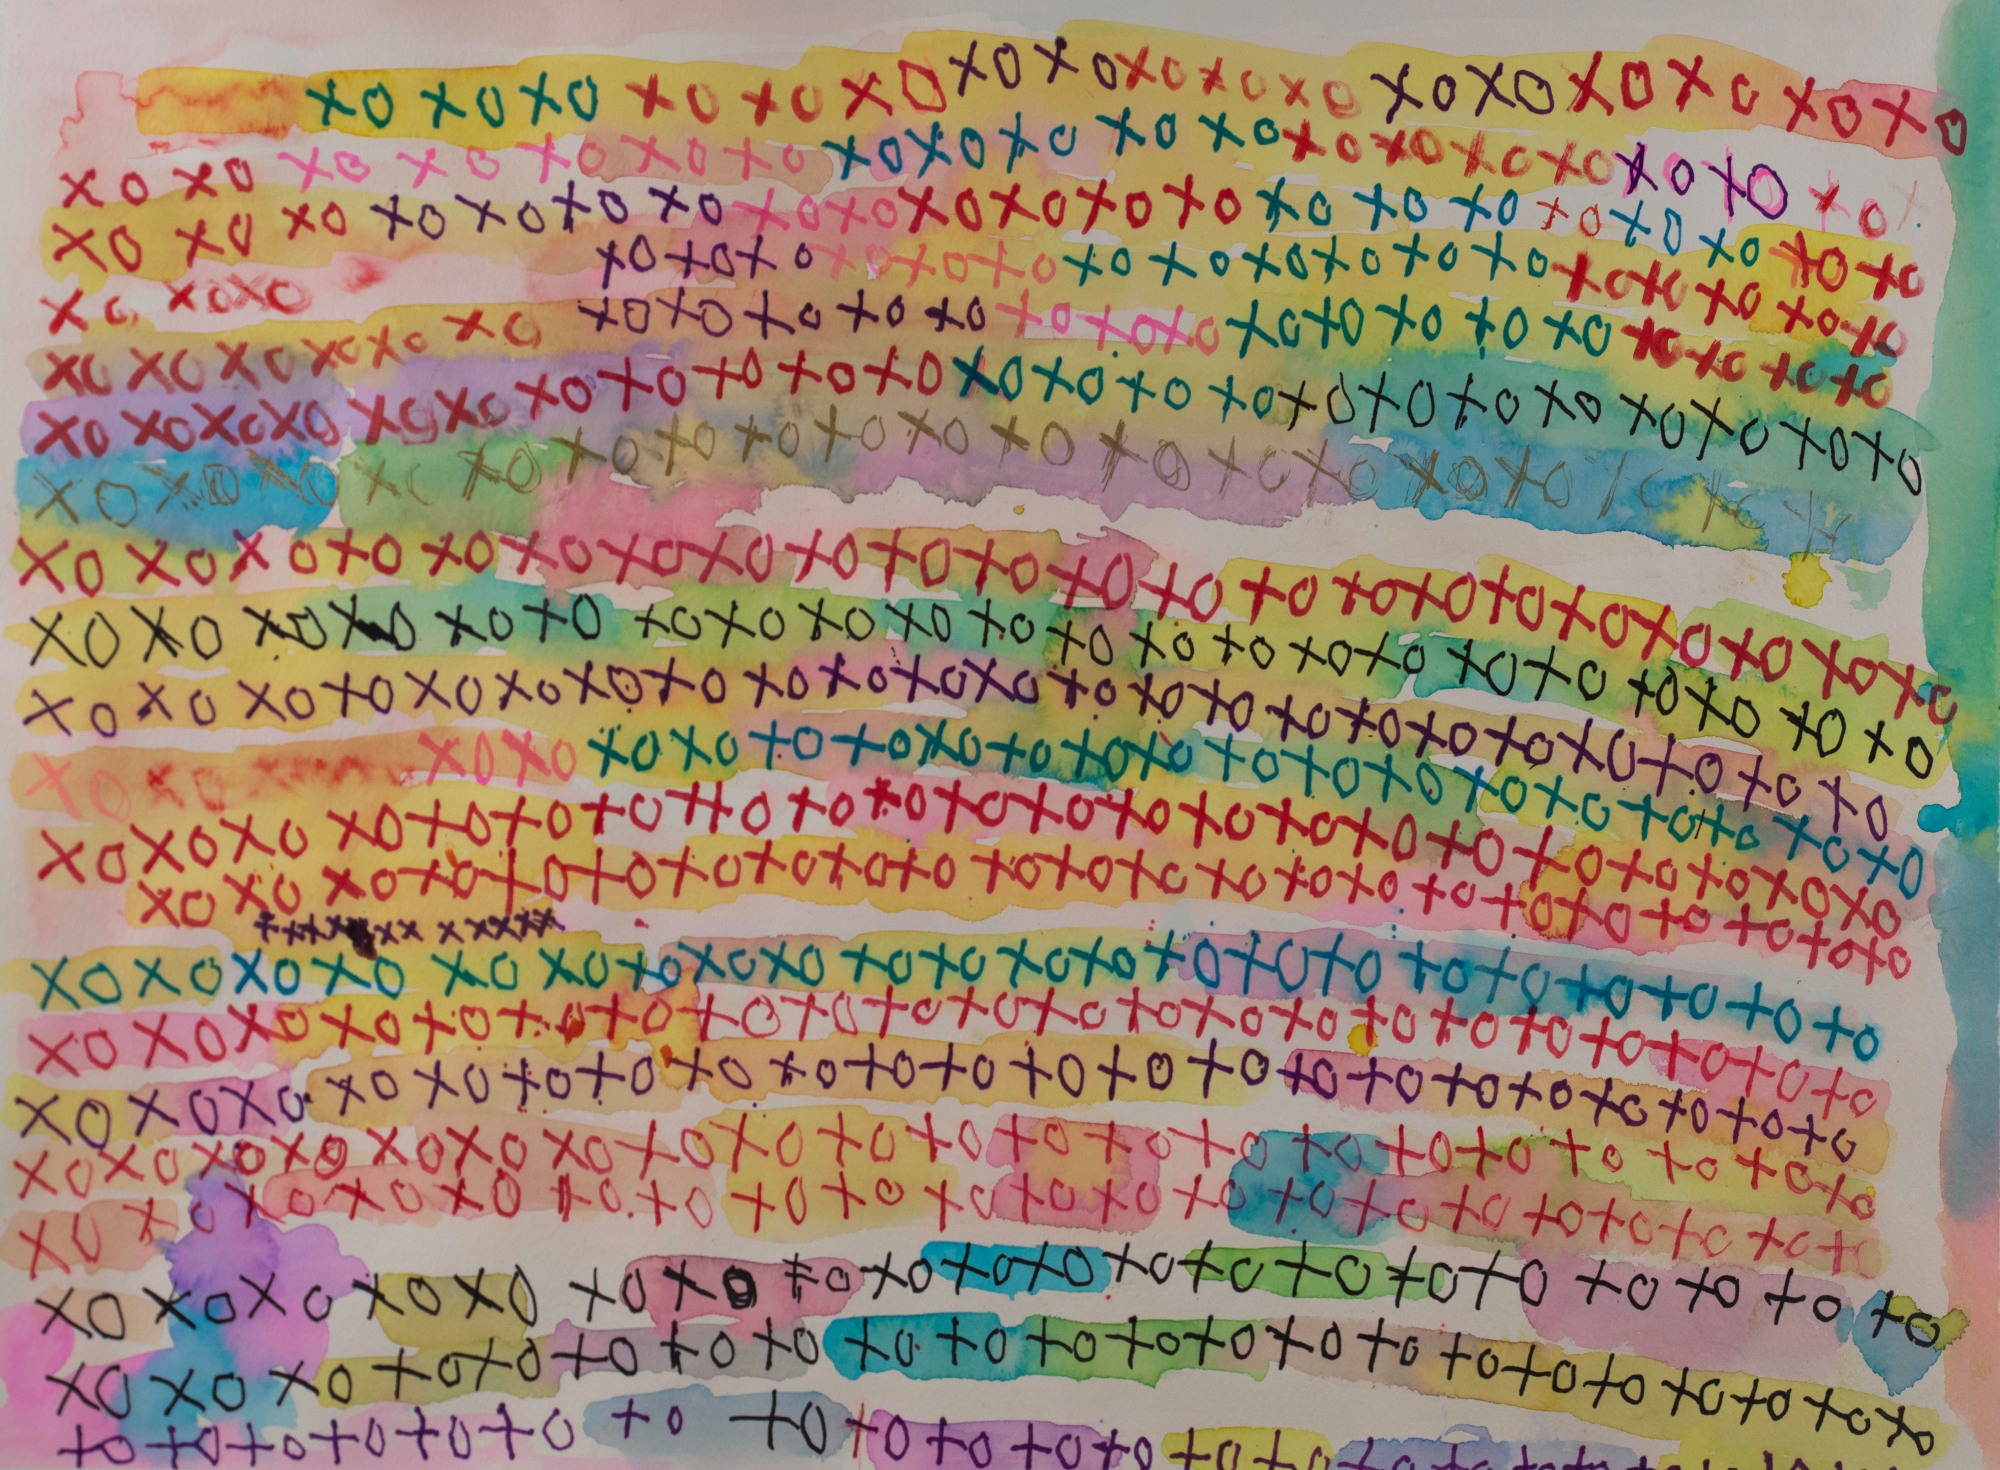 XO XO XO XO XO XO XO XO XO XO XO XO XO XO XO XO XO
XO XO XO XO XO XO XO XO XO XO XO XO XO XO XO XO XO XO XO X
XO XO XO XO XO XO XO XO XO XO XO XO XO XO XO XO XO XO XO XO XO
XO XO XO XO XO XO XO XO XO XO XO XO XO XO XO XO XO XO XO XO
XO XO XO XO XO XO XO XO XO XO XO XO XO XO XO XO XO XO XO XO XO XO XO
XO XO XO XO XO XO XO XO XO XO XO XO XO XO XO XO XO XO XO XO XO XO XO
XO XO XO XO XO XO XO XO XO XO XO XO XO XO XO XO XO XO X
XO XO XO XO XO XO XO XO XO XO XO XO XO XO XO XO XO XO XO XO XO XO
XO XO XO XO XO XO XO XO XO XO XO XO XO XO XO XO XO XO XO XO XO XO
XO XO XO XO XO XO XO XO XO XO XO XO XO XO XO XO XO XO XO XO XO XO XO
XO XO XO XO XO XO XO XO XO XO XO XO XO XO XO XO XO XO XO XO XO
XO XO XO XO XO XO XO XO XO XO XO XO XO XO XO XO XO XO XO XO XO XO
XO XO XO XO XO XO XO XO XO XO XO XO XO XO XO XO XO XO XO XO XO XO XO
XXXXXXX XXXXXX
XO XO XO XO XO XO XO XO XO XO XO XO XO XO XO XO XO XO XO XO XO XO
XO XO XO XO XO XO XO XO XO XO XO XO XO XO XO XO XO XO XO XO XO XO
XO XO XO XO XO XO XO XO XO XO XO XO XO XO XO XO XO XO XO XO XO XO
XO XO XO XO XO XO XO XO XO XO XO XO XO XO XO XO XO XO XO XO XO
XO XO XO XO XO XO XO XO XO XO XO XO XO XO XO XO XO XO XO XO XO
XO XO XO XO XO XO XO XO XO XO XO XO XO XO XO XO XO XO XO XO
XO XO XO XO XO XO XO XO XO XO XO XO XO XO XO XO XO XO XO XO XO XO
XO XO XO XO XO XO XO XO XO XO XO XO XO XO